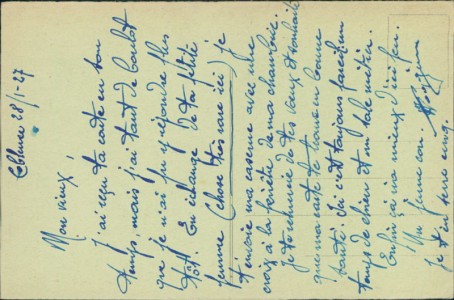 28/1-27
Mon vieux,
J'ai reçu ta carte en bon
temps, mais j'ai tant de boulot
que je n'ai pu y répondre plus
tôt. En échange de ta petite
femme (chose très rare ici) je
t'envoie ma caserne avec une
croix à la fenêtre de ma chambrée.
Je te remercie de tes vœux et souhaite
que ma carte te trouve en bonne
santé. Ici c'est toujours pareil un
temps de chien et un sale métier.
Enfin ça ira mieux d'ici peu.
Je t'en serre cinq.